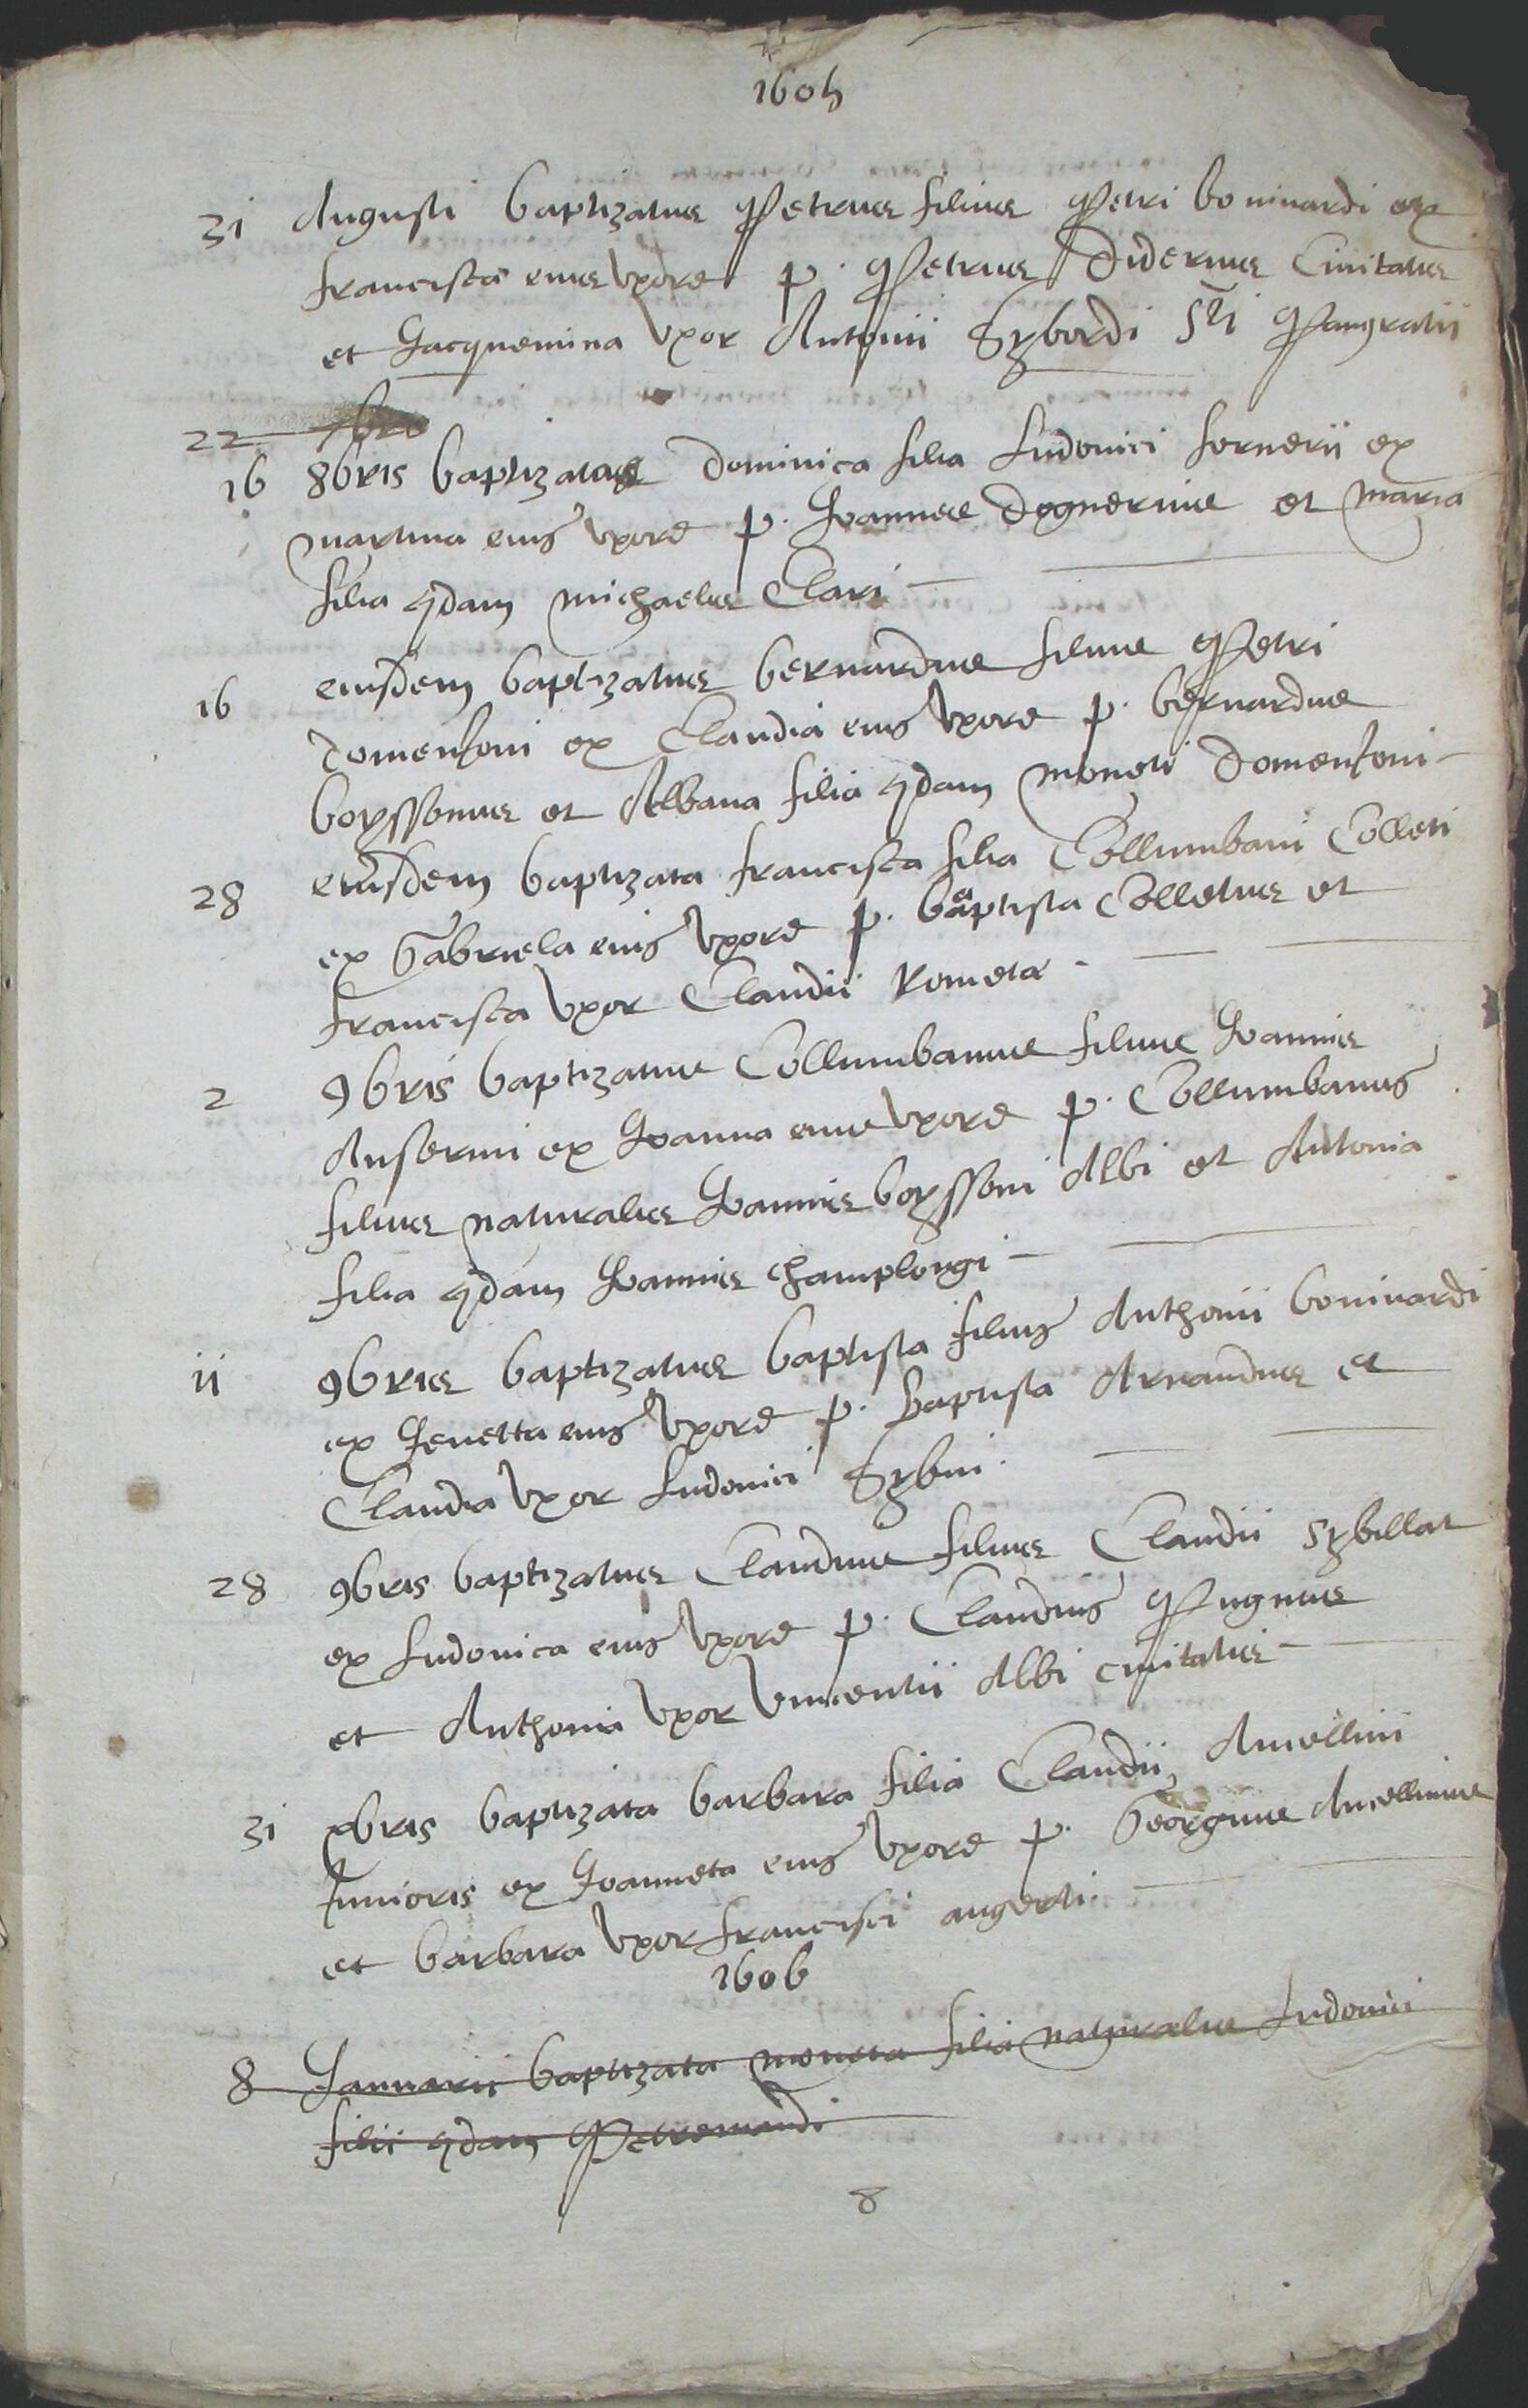 1605
31 Augusti baptizatus Petrus filius Petri boniuardi ex
francisca eius vxore p. Petrus Diderius Ciuitatis
et Jacquemina vxor Antonii Sybordi Sti Pangratii
22 7bris
16 8bris baptizata Dominica filia Ludouici fornerii ex
martina eius vxore p. Joannes Dognerius et maria
filia qdam michaelis Clari
16 eiusdem baptizatus bernardus filius Petri
Domensoni ex Claudia eius vxore p. bernardus
boyssonus et Albana filia qdam moneti Domensoni
28 eiusdem baptizata francisca filia Collumbani Colleti
ex Gabriela eius vxore p. baptista Colletus et
francisca vxor Claudii Rometa
2 9bris baptizatus Collumbanus filius Joannis
Ansermi ex Joanna eius vxore p. Collumbanus
filius naturalis Joannis boyssoni Albi et Antonia
filia qdam Joannis champlongi
11 9bris baptizatus baptista filius Anthonii boniuardi
ex Jenetta eius vxore p. baptista Arnaudus et
Claudia vxor Ludouici Sybui
28 9bris baptizatus Claudius filius Claudii Sybillat
ex Ludouica eius vxore p. Claudius Pugnus
et Anthonia vxor vincentii Albi ciuitatis
31 xbris baptizata barbara filia Claudii Ancellini
Junioris ex Joanneta eius vxore p. Georgius Ancellinus
et barbara vxor francisci angerti
1606
8 Januarii baptizata moneta filia naturalis Ludouici
filii qdam Petremandi
8